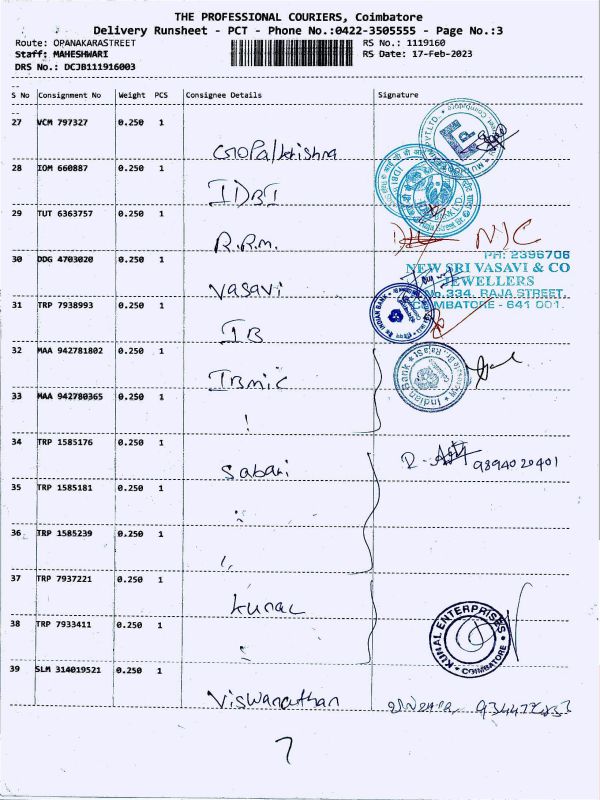 THE PROFESSIONAL COURIERS, Coimbatore
Delivery Runsheet - PCT - Phone No.:0422-3505555 - Page No.:3
Route: OPANAKARASTREET
RS No.: 1119160
Staff: MAHESHWARI
RS Date: 17-Feb-2023
DRS No.: DCJB111916003
S No Consignment No Weight PCS Consignee Details Signature
27 VCM 797327 0.250 1
Gopalkrishna
28 IOM 660887 0.250 1
IDBI
29 TUT 6363757 0.250 1
R.R.M. NJC
30 DDG 4703020 0.250 1
Vasavi
PH: 2396706
NEW SRI VASAVI & CO
JEWELLERS
No.334, RAJA STREET,
COIMBATORE - 641 001.
31 TRP 7938993 0.250 1
IB
INDIAN BANK
32 MAA 942781802 0.250 1
IBMIC
Indian Bank
33 MAA 942780365 0.250 1
34 TRP 1585176 0.250 1
Sabari
9894020401
35 TRP 1585181 0.250 1
36 TRP 1585239 0.250 1
37 TRP 7937221 0.250 1
Kunal
38 TRP 7933411 0.250 1
KUNAL ENTERPRISES
COIMBATORE
39 SLM 314019521 0.250 1
Viswanathan
7